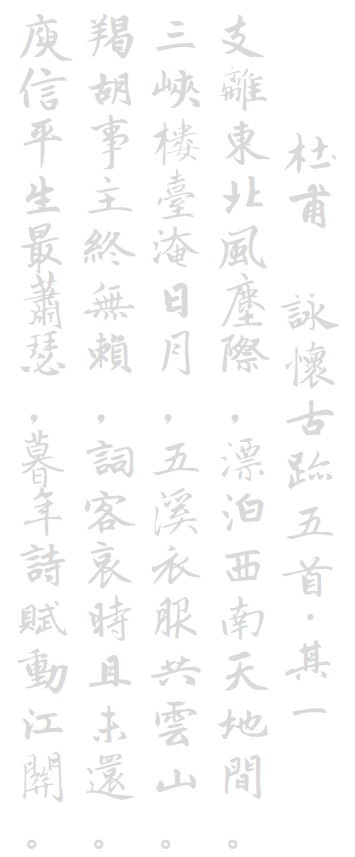 杜甫 詠懷古跡五首·其一
支離東北風塵際，漂泊西南天地間。
三峽樓臺淹日月，五溪衣服共雲山。
羯胡事主終無賴，詞客哀時且未還。
庾信平生最蕭瑟，暮年詩賦動江關。